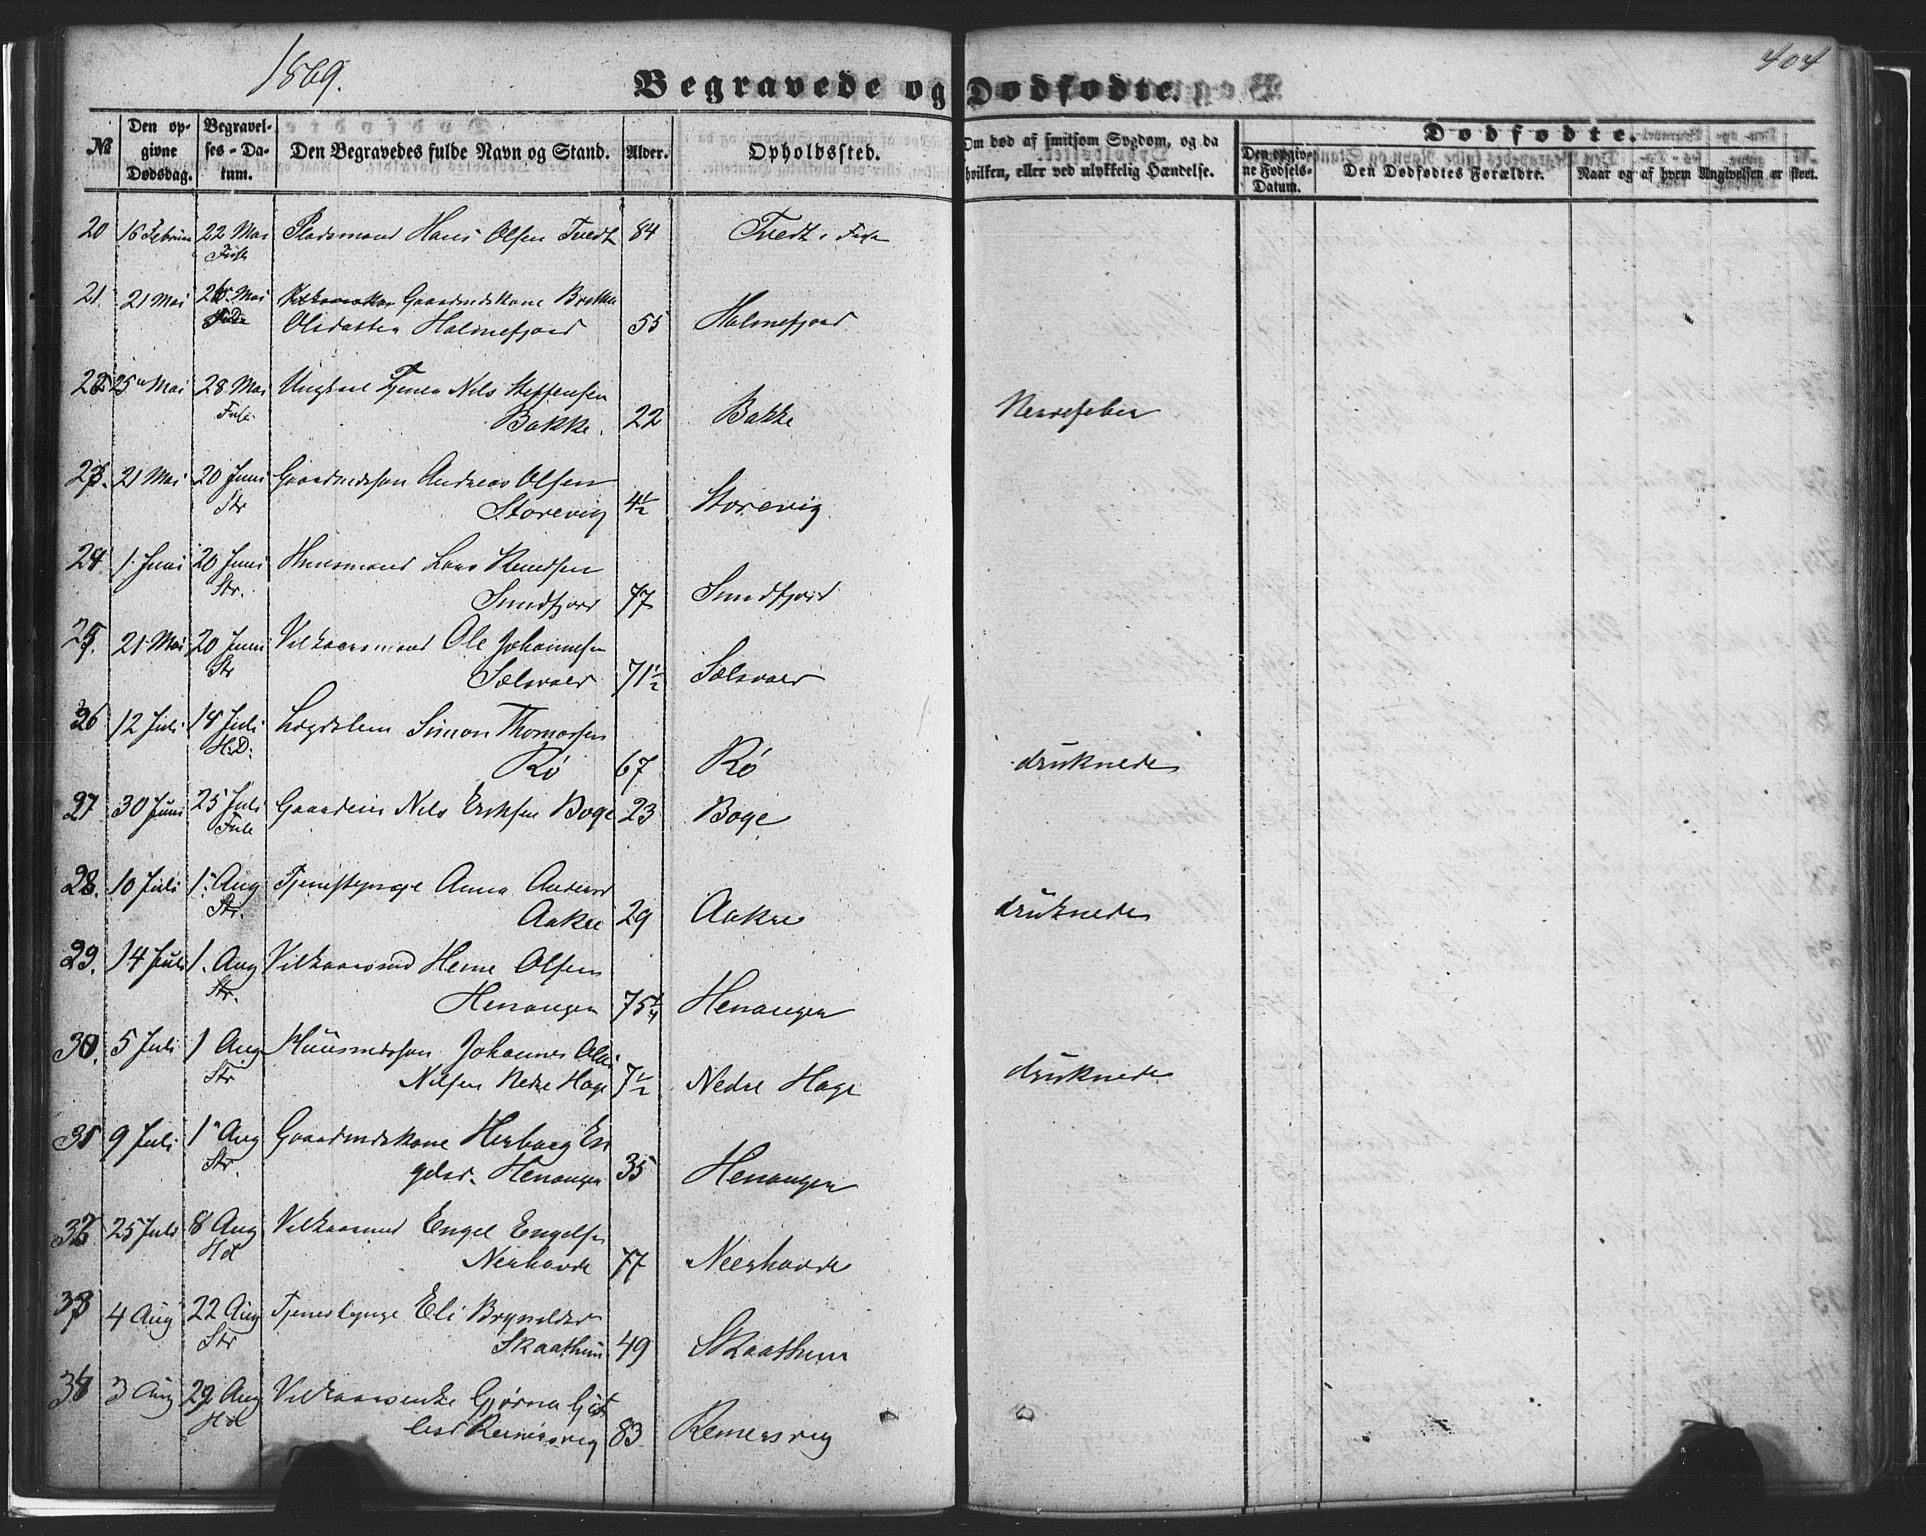 1869.
404
Begravede og Dødfødte.
№
Den opgivne Dødsdag.
Begravelses-Datum.
Den Begravedes fulde Navn og Stand.
Alder.
Opholdssted.
Om død af smitsom Sygdom, og da hvilken, eller ved ulykkelig Hændelse.
Dødfødte.
Den opgivne Fødsels-Datum.
Den Dødfødtes Forældre.
Naar og af hvem Angivelsen er skeet.
20 16 Februar 22 Mai Pladsmand Hans Olsen Tvedt 84 Tvedt i Fuse
Fuse
21. 21 Mai 26. Mai Gaardmdskone Brithe
Olsdatter Holmefjord 55 Holmefjord
22 25 Mai 28 Mai Ungkarl Tjener Nils Steffensen
Fuse Bakke. 22 Bakke Nervefeber
23. 21 Mai 20 Juni Gaardmdsson Andreas Olsen
Str Storevig 4½ Storevig
24. 1. Juni 20 Juni Huusmand Lars Knudsen
Str. Sundfjord 77 Sundfjord
25. 21 Mai 20 Juni Vilkaarsmand Ole Johannesen
Str Sælsvær 71½ Sælsvær
26 12 Juli 18 Juli Lægdslem Simon Thomassen
H.D. Rø 67 Rø druknede
27 30 Juni 25 Juli Nils Eriksen Boge 23 Boge
Fuse
28. 10 Juli 1. Aug Tjenestepige Anna Andersd
Str. Aakre 29 Aakre druknede
29. 14 Juli 1. Aug Vilkaarsmd Herne Olsen
Str. Henangen 75¼ Henangen
30. 5 Juli 1 Aug Huusmdsson Johannes Olai
Str Nilsen Nedre Hage 7½ Nedre Hage druknede
31 9 Juli 1 Aug Gaardmdskone Herborg En
Str. gelsd. Henangen 35 Henangen
32 25 Juli 8 Aug Vilkaarsmd Engel Engelsen
Hd Nerhovde 77 Neerhovde
33 4 Aug 22 Aug Tjenestepige Eli Brynildsd
Str Skaathun 49 Skaathun
34 3 Aug 29 Aug Vilkaarsenke Gjørna
Hd Reinersvig 83 Remersvig